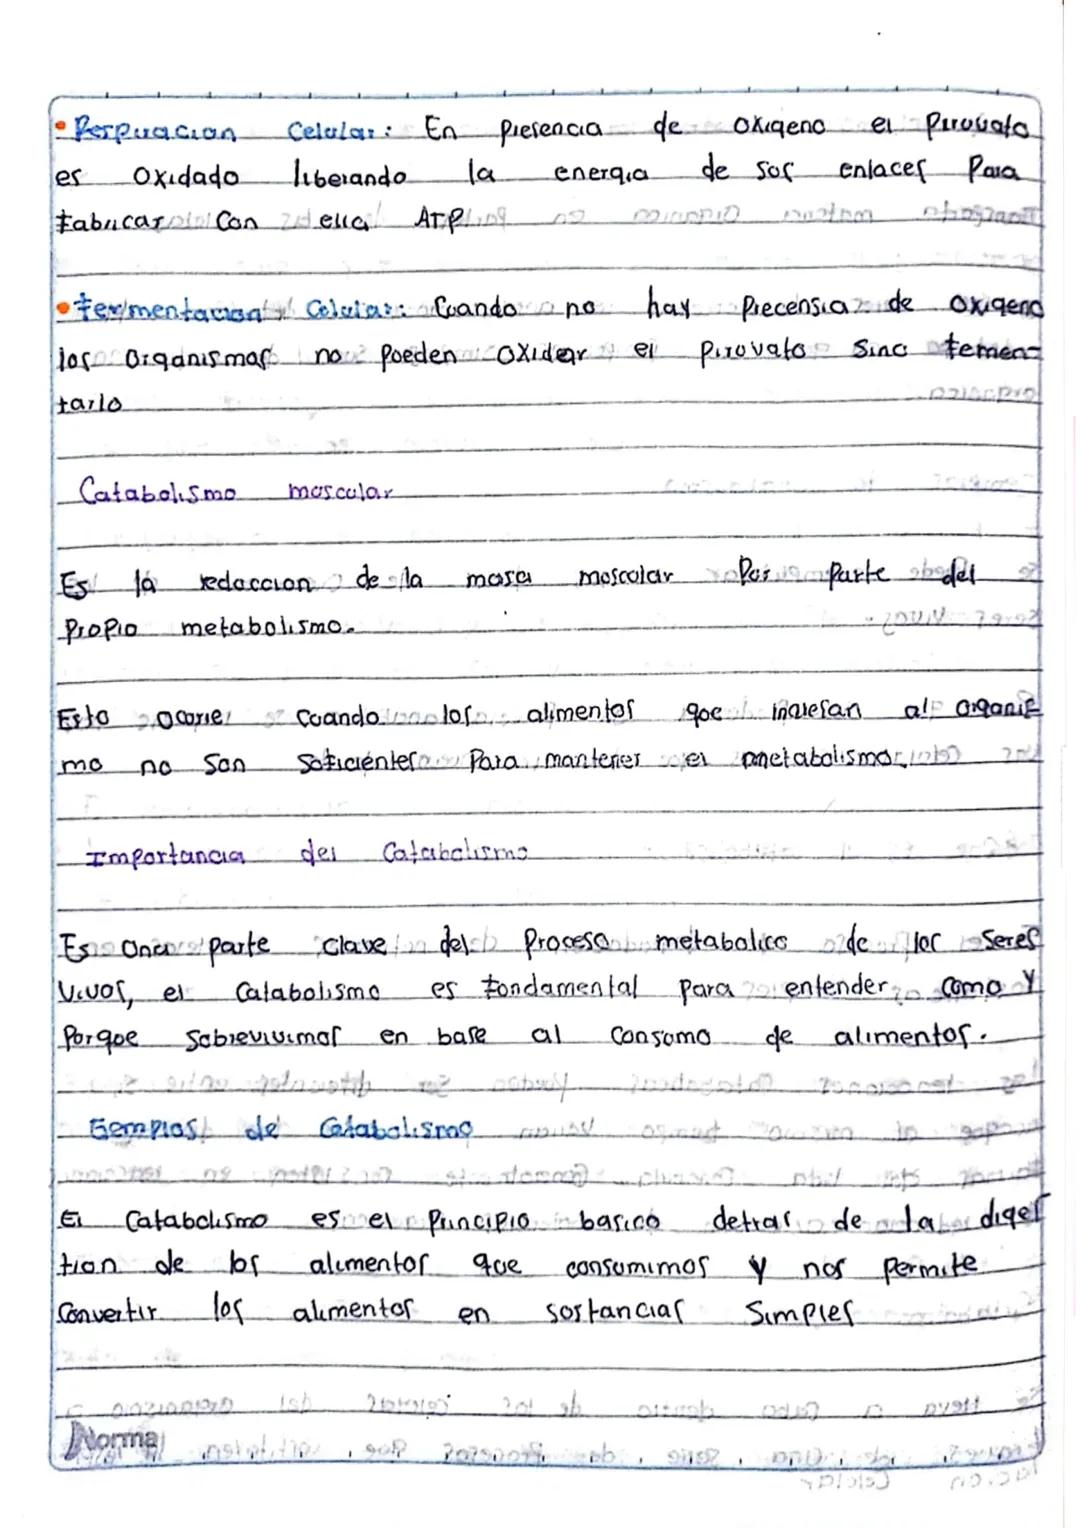 • Respiracion Celular: En presencia de oxigeno el piruvato
es oxidado liberando la energia de sus enlaces Para
fabricar Con ella ATP
• fermentacion Celular: Cuando no hay Precensia de oxigeno
los Organismos no pueden oxidar el piruvato Sino femen-
tarlo
Catabolismo muscular
Es la reduccion de la masa muscular Por parte del
Propio metabolismo.
Esto ocurre Cuando los alimentos que ingresan al organis
mo no son suficientes Para mantener el metabolismo
Importancia del Catabolismo
Es una parte clave del Proceso metabolico de los Seres
Vivos, el Catabolismo es fundamental para entender como Y
Porque Sobrevivimos en base al Consumo de alimentos.
Eemplos de Catabolismo
El Catabolismo es el Principio basico detras de la diges
tion de los alimentos que consumimos y nos permite
Convertir los alimentos en sustancias Simples
Norma